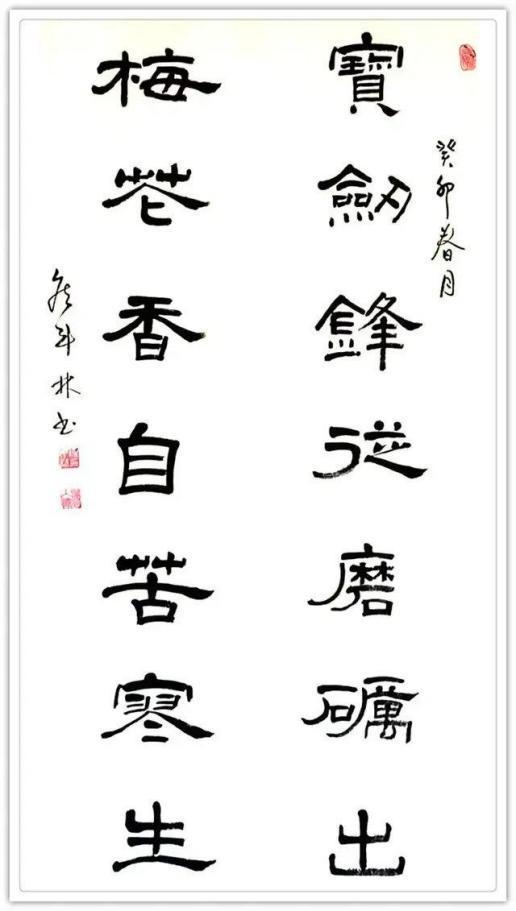 癸卯春月
寶劒鋒從磨礪出
梅花香自苦寒生
林书